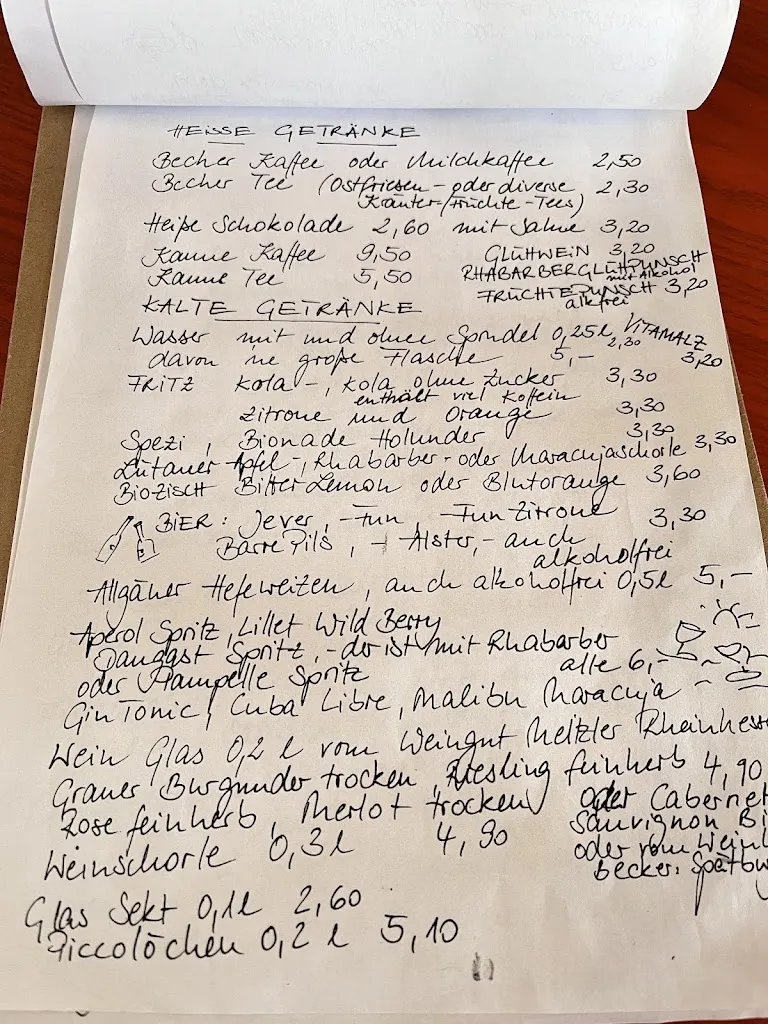 HEISSE GETRÄNKE
Becher Kaffee oder Milchkaffee 2,50
Becher Tee (Ostfriesen- oder diverse 2,30
Kräuter-/Früchte-Tees)
Heiße Schokolade 2,60 mit Sahne 3,20
Kanne Kaffee 9,50 GLÜHWEIN 3,20
Kanne Tee 5,50 RHABARBERGLÜHPUNSCH
mit Alkohol
FRÜCHTEPUNSCH 3,20
alkfrei
KALTE GETRÄNKE
Wasser mit und ohne Sprudel 0,25l 2,30 VITAMALZ
davon ne große Flasche 5,- 3,20
FRITZ Kola-, Kola ohne Zucker 3,30
enthält viel Koffein
Zitrone und Orange 3,30
Spezi, Bionade Holunder 3,30
Lütauer Apfel-, Rhabarber- oder Maracujaschorle 3,30
BIOZISCH Bitter Lemon oder Blutorange 3,60
BIER: Jever, -Fun, Fun Zitrone 3,30
Barre Pils, - Alster, - auch
alkoholfrei
Allgäuer Hefeweizen, auch alkoholfrei 0,5l 5,-
Aperol Spritz, Lillet Wild Berry
Dangast Spritz, - der ist mit Rhabarber
oder Pampelle Spritz alle 6,-
Gin Tonic, Cuba Libre, Malibu Maracuja
Wein Glas 0,2 l vom Weingut Metzler Rheinhesse
Grauer Burgunder trocken, Riesling feinherb 4,90
Rose feinherb, Merlot trocken oder Cabernet
Sauvignon Bi
Weinschorle 0,3l 4,90 oder vom Wein
becker: Spätbu
Glas Sekt 0,1l 2,60
Piccolöchen 0,2 l 5,10